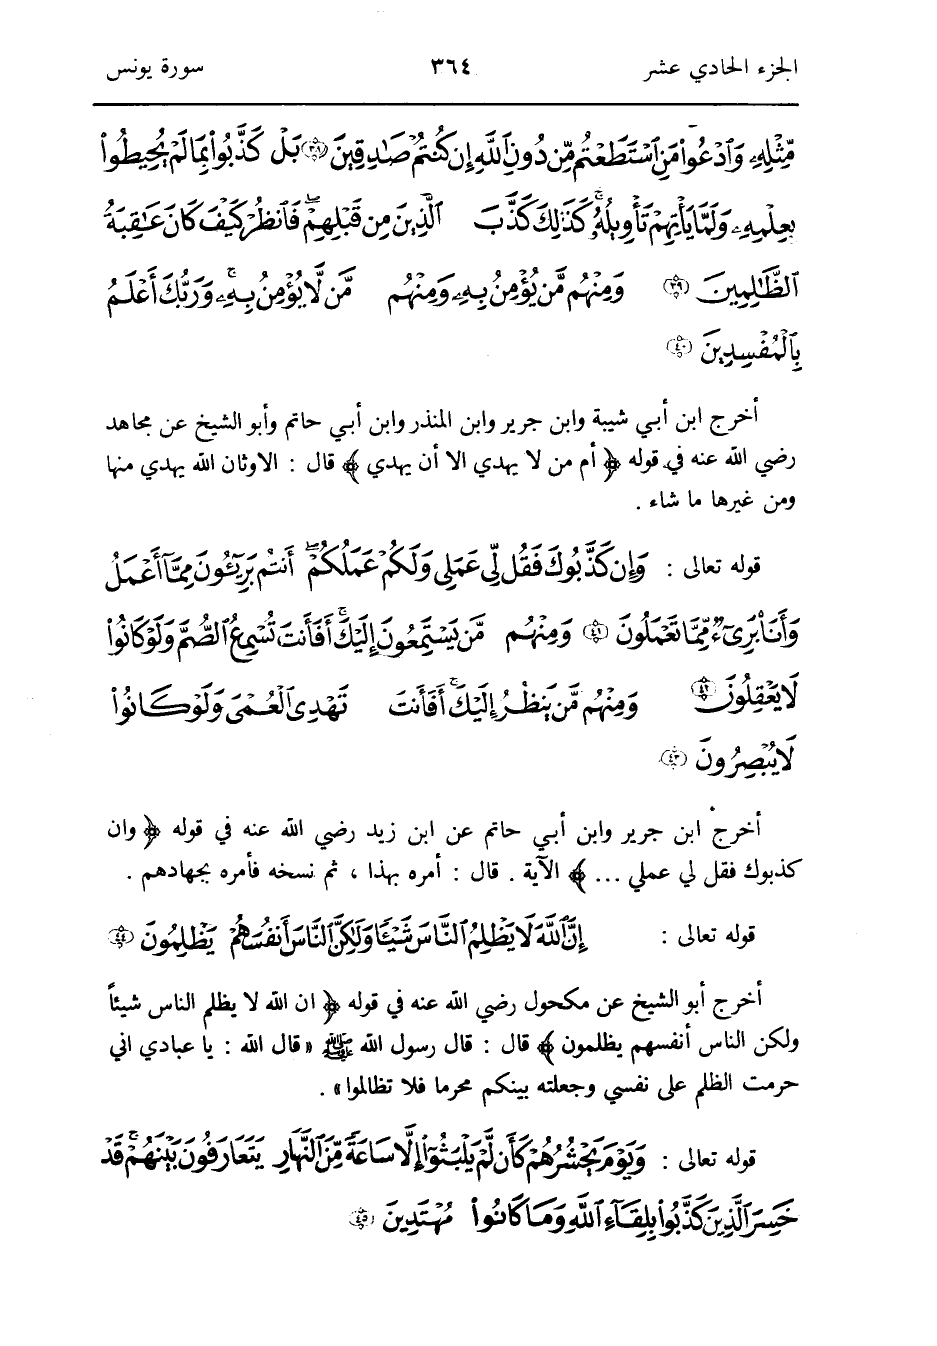 الجزء الحادي عشر ٣٦٤ سورة يونس
مِّثْلِهِۦ وَٱدْعُوا۟ مَنِ ٱسْتَطَعْتُم مِّن دُونِ ٱللَّهِ إِن كُنتُمْ صَٰدِقِينَ ﴿٣٨﴾ بَلْ كَذَّبُوا۟ بِمَا لَمْ يُحِيطُوا۟
بِعِلْمِهِۦ وَلَمَّا يَأْتِهِمْ تَأْوِيلُهُۥ ۚ كَذَٰلِكَ كَذَّبَ ٱلَّذِينَ مِن قَبْلِهِمْ ۖ فَٱنظُرْ كَيْفَ كَانَ عَٰقِبَةُ
ٱلظَّٰلِمِينَ ﴿٣٩﴾ وَمِنْهُم مَّن يُؤْمِنُ بِهِۦ وَمِنْهُم مَّن لَّا يُؤْمِنُ بِهِۦ ۚ وَرَبُّكَ أَعْلَمُ
بِٱلْمُفْسِدِينَ ﴿٤٠﴾
أخرج ابن أبي شيبة وابن جرير وابن المنذر وابن أبي حاتم وأبو الشيخ عن مجاهد
رضي الله عنه في قوله ﴿ أم من لا يهدي الا أن يهدي ﴾ قال : الاوثان الله يهدي منها
ومن غيرها ما شاء .
قوله تعالى : وَإِن كَذَّبُوكَ فَقُل لِّى عَمَلِى وَلَكُمْ عَمَلُكُمْ ۖ أَنتُم بَرِيٓـُٔونَ مِمَّآ أَعْمَلُ
وَأَنَا۠ بَرِىٓءٌ مِّمَّا تَعْمَلُونَ ﴿٤١﴾ وَمِنْهُم مَّن يَسْتَمِعُونَ إِلَيْكَ ۚ أَفَأَنتَ تُسْمِعُ ٱلصُّمَّ وَلَوْ كَانُوا۟
لَا يَعْقِلُونَ ﴿٤٢﴾ وَمِنْهُم مَّن يَنظُرُ إِلَيْكَ ۚ أَفَأَنتَ تَهْدِى ٱلْعُمْىَ وَلَوْ كَانُوا۟
لَا يُبْصِرُونَ ﴿٤٣﴾
أخرج ابن جرير وابن أبي حاتم عن ابن زيد رضي الله عنه في قوله ﴿ وان
كذبوك فقل لي عملي ... ﴾ الآية . قال : أمره بهذا ، ثم نسخه فأمره بجهادهم .
قوله تعالى : إِنَّ ٱللَّهَ لَا يَظْلِمُ ٱلنَّاسَ شَيْـًٔا وَلَٰكِنَّ ٱلنَّاسَ أَنفُسَهُمْ يَظْلِمُونَ ﴿٤٤﴾
أخرج أبو الشيخ عن مكحول رضي الله عنه في قوله ﴿ ان الله لا يظلم الناس شيئاً
ولكن الناس أنفسهم يظلمون ﴾ قال : قال رسول الله ﷺ « قال الله : يا عبادي اني
حرمت الظلم على نفسي وجعلته بينكم محرما فلا تظالموا » .
قوله تعالى : وَيَوْمَ يَحْشُرُهُمْ كَأَن لَّمْ يَلْبَثُوٓا۟ إِلَّا سَاعَةً مِّنَ ٱلنَّهَارِ يَتَعَارَفُونَ بَيْنَهُمْ ۚ قَدْ
خَسِرَ ٱلَّذِينَ كَذَّبُوا۟ بِلِقَآءِ ٱللَّهِ وَمَا كَانُوا۟ مُهْتَدِينَ ﴿٤٥﴾